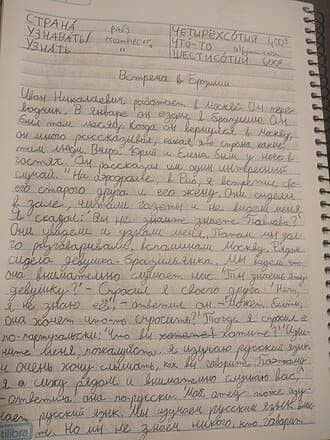 СТРАНА
УЗНАВАТЬ/
УЗНАТЬ "
ЧЕТЫРЁХСОТЫЙ 400º
ЧТО-ТО
ШЕСТИСОТЫЙ 600º
Встреча в Бразилии
Иван Николаевич работает в москве. Он пере-
водчик. В январе он ездил в Бразилию. Он
был там месяц. Когда он вернулся в москву,
он много рассказывал, какая это страна, какие
там люди. Вчера Юрий и Елена были у него в
гостях. Он рассказал им один интересный
случай. "На аэродроме, в Рио, я встретил сво-
его старого друга и его жену. Они сидели
в зале, читали газеты и не видели меня.
Я сказал: Вы не знаете Павлова?"
Они увидели и узнали меня. Потом мы дол-
го разговаривали, вспоминали Москву. Рядом
сидела девушка-бразильянка. Мы видели, что
она внимательно слушает нас. "Ты знаешь эту
девушку?" - Спросил я своего друга. "Нет,
я не знаю её", - ответил он - "может быть,
она хочет что-то спросить?" Тогда я спросил её
по-португальски: Что вы хотите? "Изви-
ните меня, пожалуйста. Я изучаю русский язык
и очень хочу слышать, как вы говорите. Поэтому
я сижу рядом и внимательно слушаю вас."
-Ответила она по-русски. Мой отец тоже изу-
чает русский язык. Мы изучаем русский язык вмес-
те. Но мы не знаем никого, кто говорит
tilibra